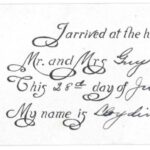 I arrived at the h
Mr. and Mrs Guy
This 28th day of Ju
My name is